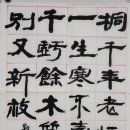 桐千年老
一生寒不
千虧餘本
別又新枝